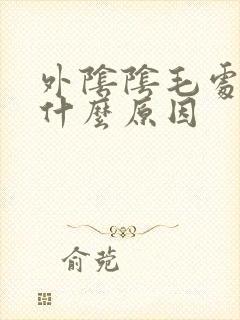 外陰陰毛處
什麼原因
俞菀